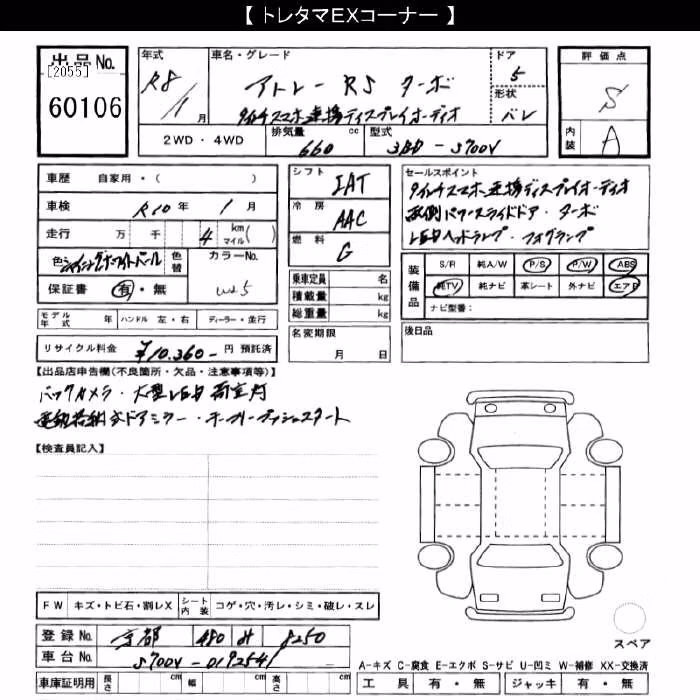 【 トレタマEXコーナー 】
出品No. [2055] 60106
年式 R8/1月
車名・グレード アトレー RS ターボ
9インチスマホ連携ディスプレイオーディオ
ドア 5
形状 バン
評価点 S
内装 A
2WD・4WD
排気量 660 cc
型式 3BD-S700V
車歴 自家用・( )
車検 R10年 1月
走行 万 千 4 km マイル( )
色 シャイニングホワイトパール 色替
カラーNo. W25
保証書 有・無
モデル年式 年 ハンドル 左・右 ディーラー・並行
リサイクル料金 ¥10,360- 円 預託済
シフト IAT
冷房 AAC
燃料 G
乗車定員 名
積載量 kg
総重量 kg
名変期限 月 日
セールスポイント
9インチスマホ連携ディスプレイオーディオ
両側パワースライドドア・ターボ
LEDヘッドランプ・フォグランプ
装備品 S/R 純A/W P/S P/W ABS
純TV 純ナビ 革シート 外ナビ エアB
ナビ型番:
後日品
【出品店申告欄(不良箇所・欠品・注意事項等)】
バックカメラ・大型LED荷室灯
電動格納式ドアミラー・キーフリープッシュスタート
【検査員記入】
FW キズ・トビ石・割レX シート内装 コゲ・穴・汚レ・シミ・破レ・スレ
登録No. 京都 480 8250
車台No. S700V-0192541
車庫証明用 長さ cm 幅 cm 高さ cm
スペア
A-キズ C-腐食 E-エクボ S-サビ U-凹ミ W-補修 XX-交換済
工具 有・無 ジャッキ 有・無